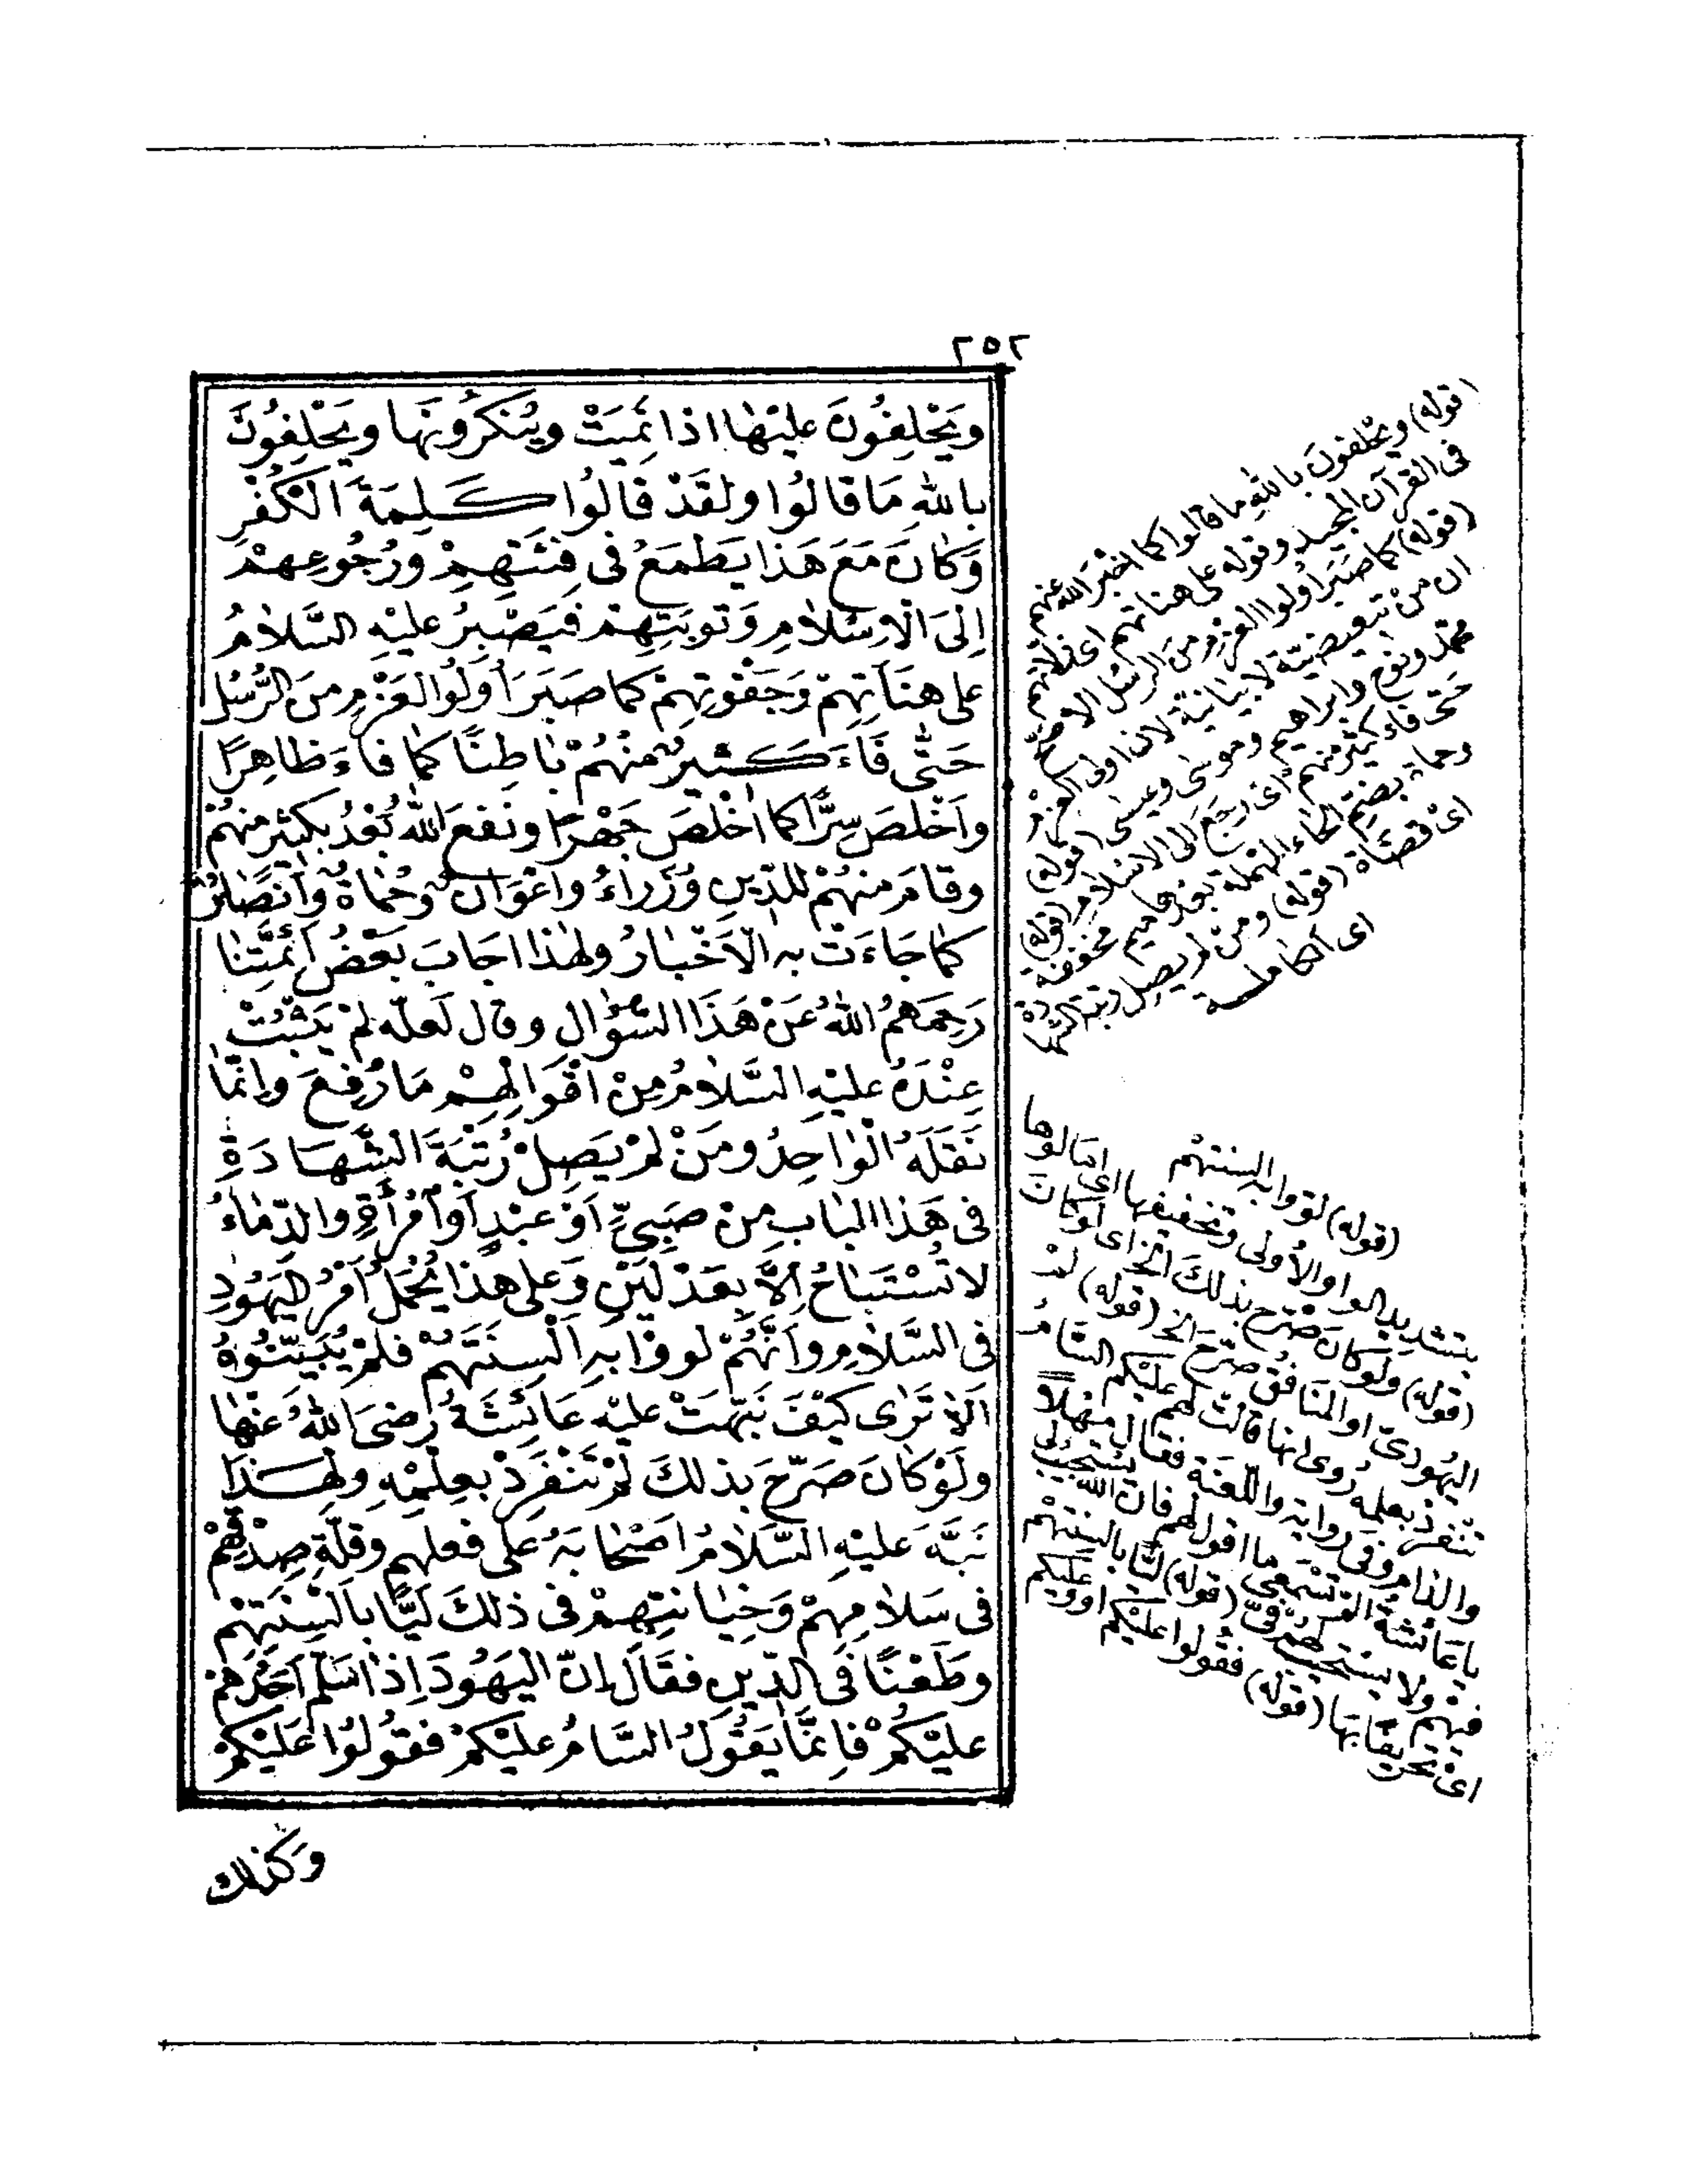 ٢٥٢
وَيَحْلِفُونَ عَلَيْهَا اذا نُمِيَتْ وَيُنْكِرُونَهَا وَيَحْلِفُونَ
بِاللهِ مَا قَالُوا وَلَقَدْ قَالُوا كَلِمَةَ الْكُفْرِ
وَكَانَ مَعَ هَذَا يَطْمَعُ فى فِئَتِهِمْ وَرُجُوعِهِمْ
اِلَى الْاِسْلَامِ وَتَوْبَتِهِمْ فَيَصْبِرُ عَلَيْهِ السَّلَامُ
على هَنَاتِهِمْ وَجَفْوَتِهِمْ كما صَبَرَ اُولُوا الْعَزْمِ مِنَ الرُّسُلِ
حَتّٰى فَاءَ كَثِيرٌ مِنْهُمْ بَاطِنًا كَمَا فَاءَ ظَاهِرًا
وَاَخْلَصَ سِرًّا كما اَخْلَصَ جَهْرًا وَنَفَعَ اللهُ بَعْدُ بِكَثِيرٍ مِنْهُمْ
وقامَ مِنْهُمْ لِلدِّينِ وُزَرَاءُ وَاَعْوَانٌ وَحُمَاةٌ وَاَنْصَارٌ
كَمَا جَاءَتْ بِهِ الْاَخْبَارُ وَلِهٰذَا اَجَابَ بَعْضُ اَئِمَّتِنَا
رَحِمَهُمُ اللهُ عَنْ هَذَا السُّؤَالِ وقال لَعَلَّهُ لَمْ يَثْبُتْ
عِنْدَهُ عَلَيْهِ السَّلَامُ مِنْ اَقْوَالِهِمْ مَا رُفِعَ وَاِنَّمَا
نَقَلَهُ الْوَاحِدُ وَمَنْ لَمْ يَصِلْ رُتْبَةَ الشَّهَادَةِ
فى هَذَا الْبَابِ مِنْ صَبِيٍّ اَوْ عَبْدٍ اَوِ امْرَأَةٍ وَالدِّمَاءُ
لا تُسْتَبَاحُ اِلَّا بِعَدْلَيْنِ وَعَلى هٰذَا يُحْمَلُ اَمْرُ الْيَهُودِ
فى السَّلَامِ وَاَنَّهُمْ لَوَوْا بِهِ اَلْسِنَتَهُمْ فَلَمْ يُبَيِّنُوهُ
اَلَا تَرٰى كَيْفَ نَبَّهَتْ عَلَيْهِ عَائِشَةُ رَضِىَ اللهُ عَنْهَا
وَلَوْ كَانَ صَرَّحَ بِذلِكَ لَمْ تَنْفَرِدْ بِعِلْمِهِ وَلِهٰذَا
نَبَّهَ عَلَيْهِ السَّلَامُ اَصْحَابَهُ عَلٰى فِعْلِهِمْ وَقِلَّةِ صِدْقِهِمْ
فى سَلَامِهِمْ وَخِيَانَتِهِمْ فى ذلِكَ لَيًّا بِاَلْسِنَتِهِمْ
وَطَعْنًا فى الدِّينِ فَقَالَ اِنَّ الْيَهُودَ اِذَا سَلَّمَ اَحَدُهُمْ
عَلَيْكُمْ فَاِنَّمَا يَقُولُ السَّامُ عَلَيْكُمْ فَقُولُوا عَلَيْكُمْ
وكذلك
(قوله) ويحلفون بالله ما قالوا كما اخبر الله عنهم
فى القرآن المجيد وقوله على هناتهم اى
(قوله) كما صبر اولوا العزم من الرسل الاصح
ان من تبعيضية لا بيانية لان اولى العزم
محمد ونوح وابراهيم وموسى وعيسى (قوله)
حتى فاء كثير منهم اى رجع الى الاسلام (قوله)
وحماة بضم الحاء المهملة بعدها ميم مخففة
اى قضاة (قوله) ومن لم يصل رتبة الشهادة
اى الكاملة
(قوله) لووا به السنتهم
بتشديد الواو الاولى وتخفيفها اى امالوها
(قوله) ولو كان صرح بذلك الخ اى لو كان
اليهودى او المنافق صرح الخ (قوله) لم
تنفرد بعلمه روى انها قالت لهم عليكم السام
والذام وفى رواية واللعنة فقال مهلا
يا عائشة الم تسمعى ما اقول لهم فان الله يستجيب لى
فيهم ولا يستجيب لهم فىّ (قوله) ليا بالسنتهم
اى تحريفا بها (قوله) فقولوا عليكم او وعليكم